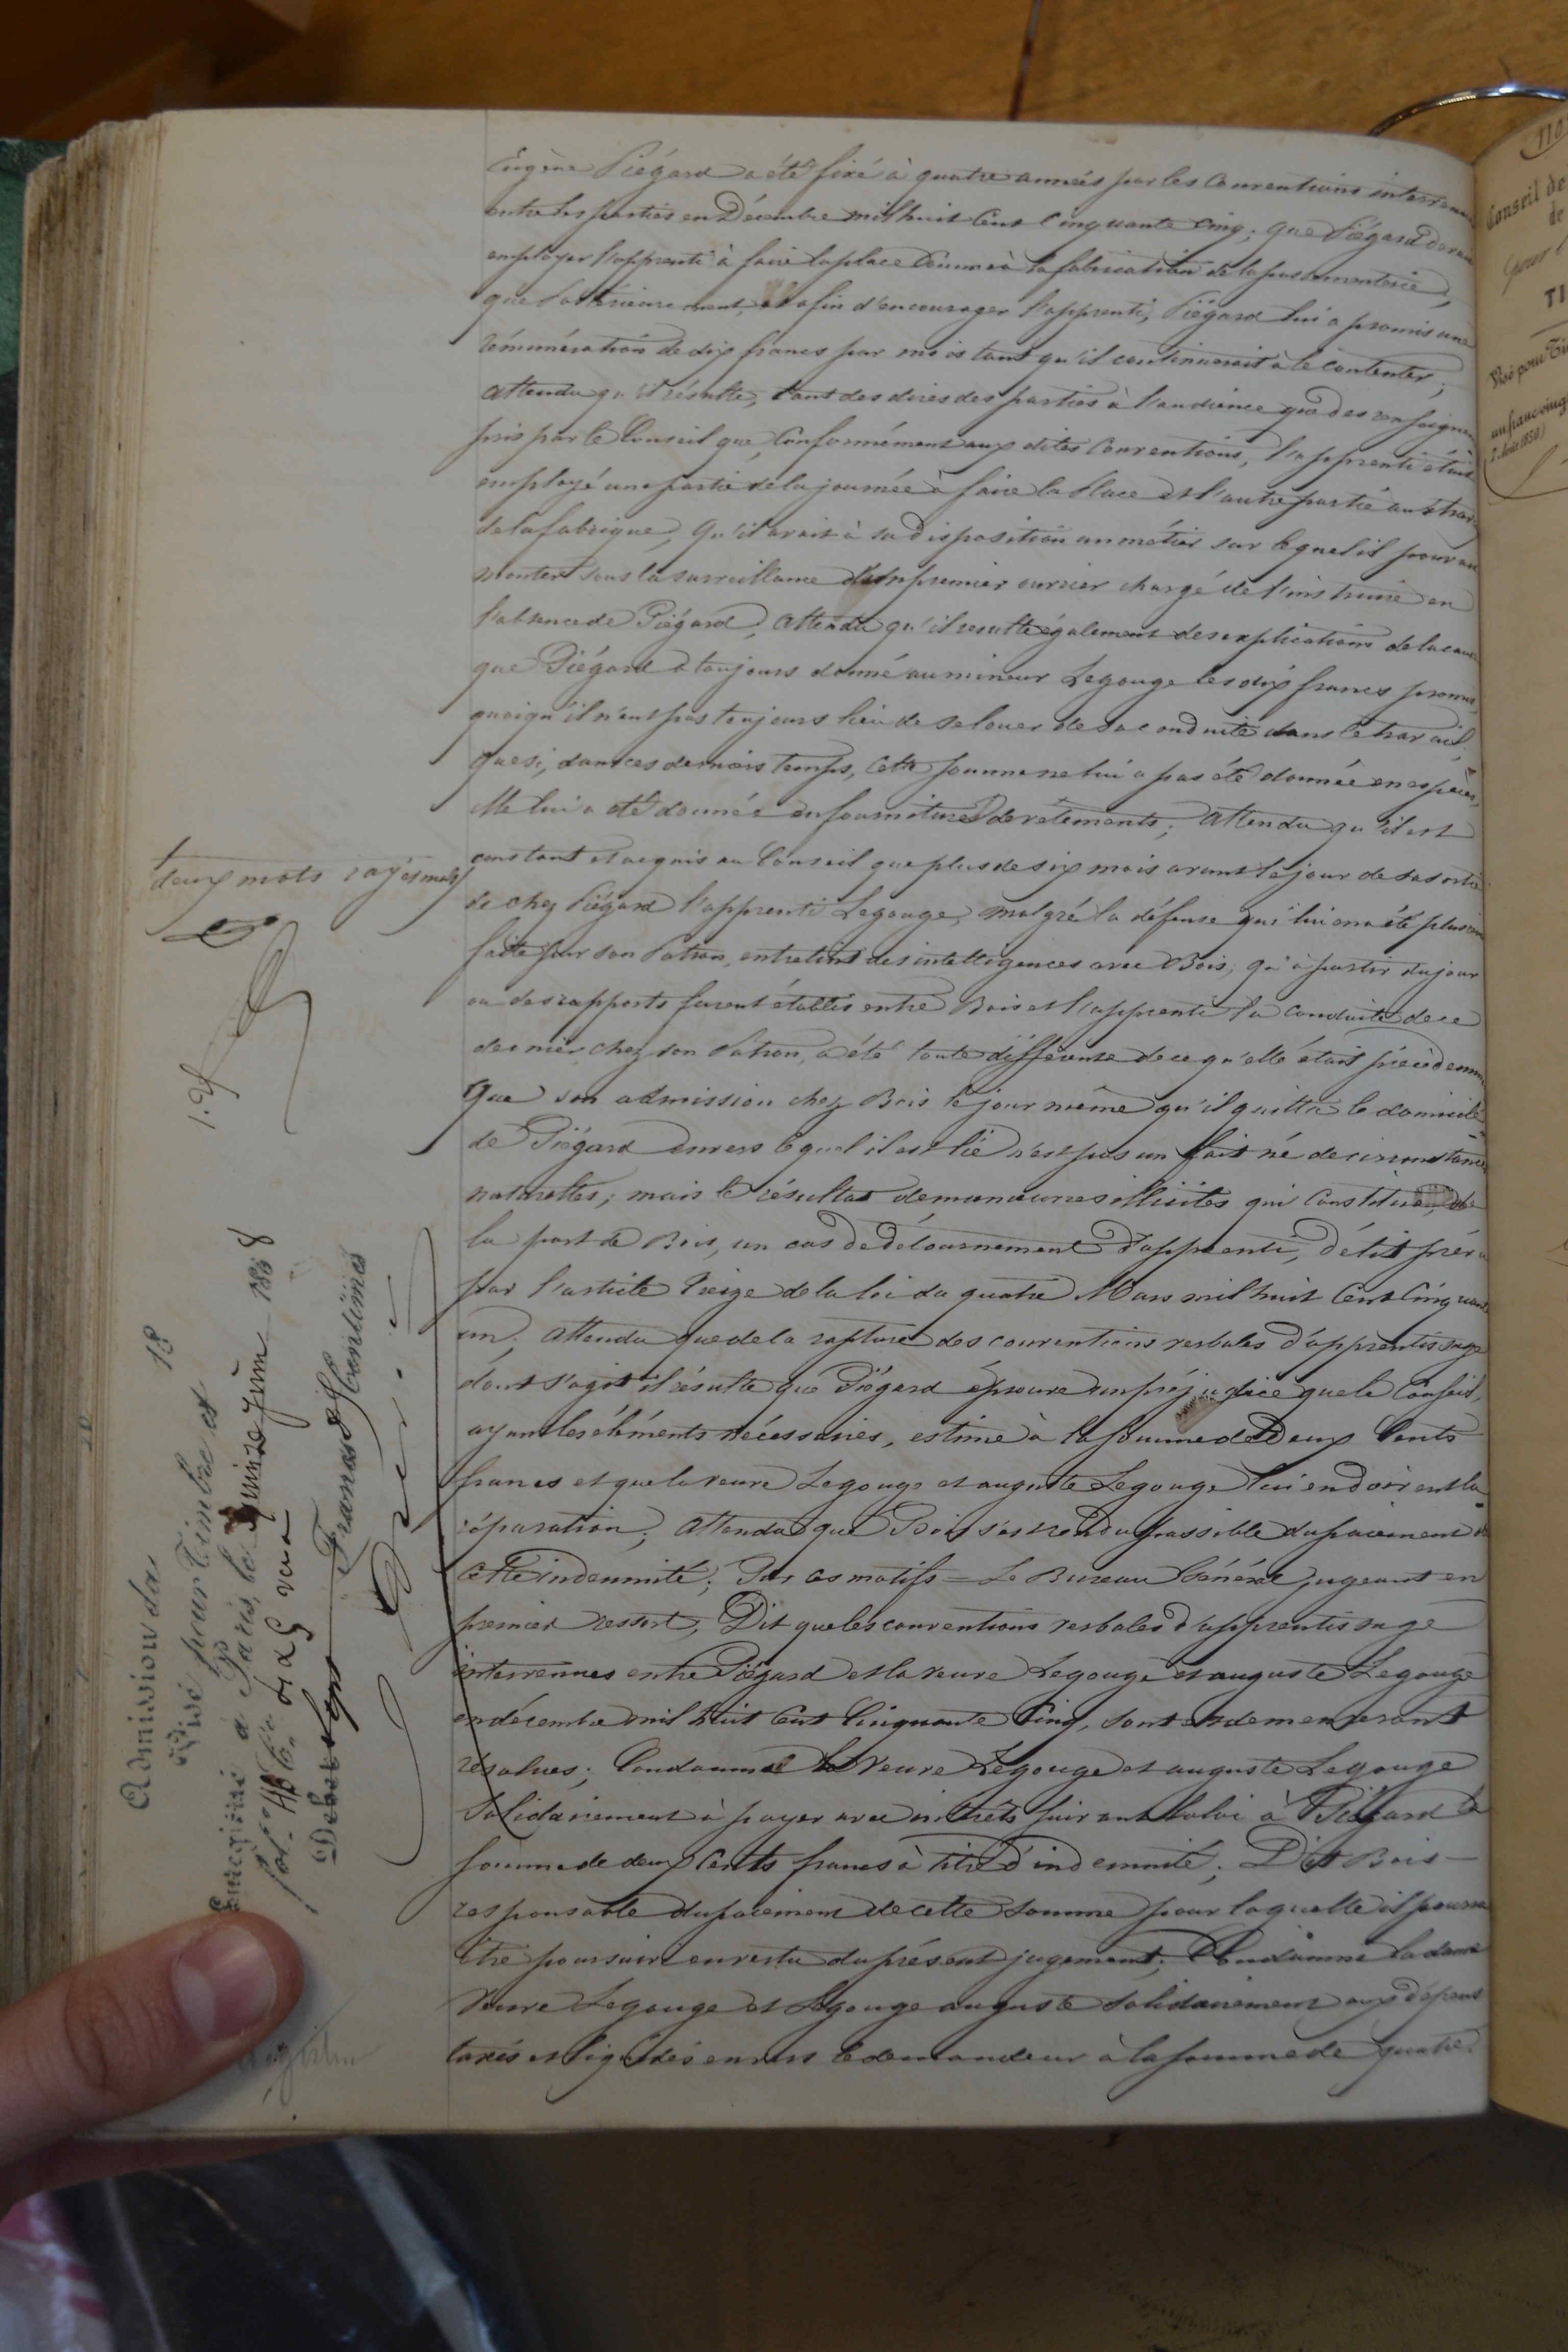 Eugène Piégard a été fixé à quatre années par les Conventions intervenues
entre les parties en Décembre mil huit Cent Cinquante Cinq; que Piégard devait
employer l'apprenti à faire la place comme à la fabrication de la passementerie,
que Postérieurement, et afin d'encourager l'apprenti, Piégard lui a promis une
rémunération de dix francs par mois tant qu'il continuerait à le contenter;
attendu qu'il résulte, tant des dires des parties à l'audience que des renseignemen
pris par le Conseil que, Conformément aux dites Conventions, l'apprenti était
employé une partie de la journée à faire la Place et l'autre partie aux trav
de la fabrique, qu'il avait à sa disposition un métier sur lequel il pouvait
monter sous la surveillance d'un premier ouvrier chargé de l'instruire en
l'absence de Piégard; attendu qu'il résulte également des explications de la cause
que Piégard a toujours donné au mineur Legouge les dix francs promis
quoiqu'il n'eut pas toujours lieu de se louer de sa conduite dans le travail,
que si, dans ces derniers temps, cette somme ne lui a pas été donnée en espèces,
elle lui a été donnée en fournitures de vêtements; attendu qu'il est
constant et acquis au Conseil que plus de six mois avant le jour de sa sortie
de chez Piégard l'apprenti Legouge, malgré la défense qui lui en a été plusieurs
faite par son Patron, entretint des intelligences avec Bois; qu'à partir du jour
où des rapports furent établis entre Bois et l'apprenti la conduite de ce
dernier chez son Patron, a été toute différente de ce qu'elle était précédemm
que son admission chez Bois le jour même qu'il quitta le domicile
de Piégard envers lequel il est lié n'est pas un fait né de circonstances
naturelles; mais le résultat de manoeuvres illicites qui constituent, de
la part de Bois, un cas de détournement d'apprenti, délit prévu
par l'article treize de la loi du quatre Mars mil huit Cent Cinquante
un; attendu que de la rupture des conventions verbales d'apprentissage
dont s'agit il résulte que Piégard éprouve un préjudice que le Conseil,
ayant les éléments nécessaires, estime à la somme de Deux Cents
francs et que la veuve Legouge et auguste Legouge lui en doivent la
réparation; attendu que Bois s'est rendu passible du paiement de
cette indemnité; Par ces motifs = Le Bureau Général jugeant en
premier ressort; Dit que les conventions verbales d'apprentissage
intervenues entre Piégard et la veuve Legouge et auguste Legouge
en décembre mil huit Cent Cinquante Cinq, sont et demeureront
résolues; Condamne la veuve Legouge et auguste Legouge
Solidairement à payer avec intérêts suivant la loi à Piégard la
somme de deux Cents francs à titre d'indemnité; Dit Bois
responsable du paiement de cette somme pour laquelle il pourra
être poursuivi en vertu du présent jugement; Condamne la dame
Veuve Legouge et Legouge auguste Solidairement aux dépens
taxés et liquidés envers le demandeur à la somme de quatre
deux mots rayés nuls
Admission da 18
Visé pour Timbre et
Enregistré à Paris, le quinze juin 1858
Debet
francs
centimes
Conseil de
de
pour l
TI
Visé pour Ti
un franc vingt